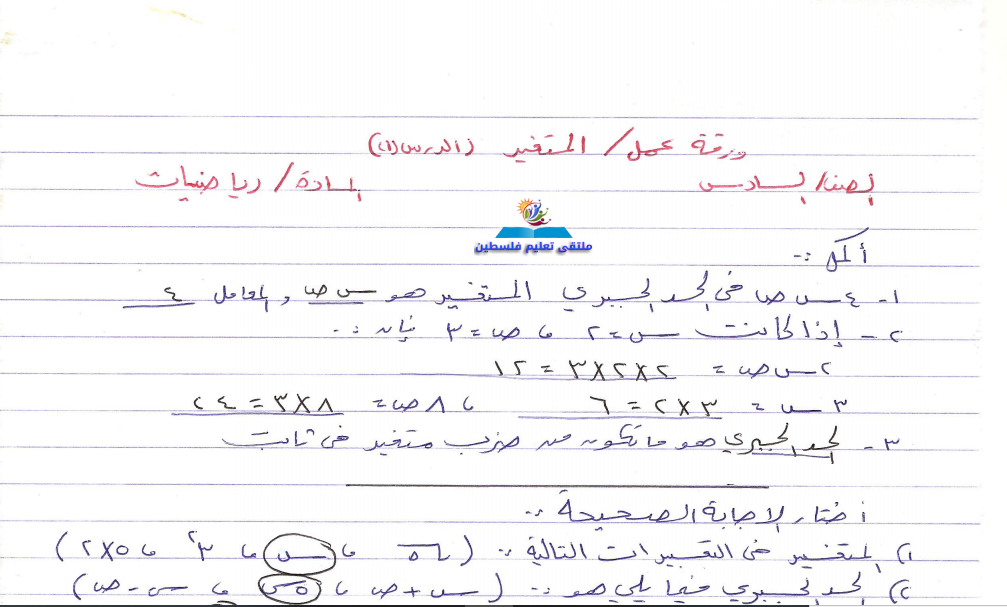 ورقة عمل / المتغير (الدرس (١))
الصف / السادس المادة / رياضيات
ملتقى تعليم فلسطين
أكمل :-
١- ٤ س ص في الحد الجبري المتغير هو س ص والمعامل ٤
٢- إذا كانت س = ٢ ، ص = ٣ فإن :-
٢ س ص = ٢×٢×٣ = ١٢
٣ س = ٣×٢ = ٦ ، ٨ ص = ٨×٣ = ٢٤
٣- الحد الجبري هو ما تكون من ضرب متغير في ثابت
أختار الإجابة الصحيحة :-
١) المتغير في التعبيرات التالية :- ( ، س ، ٣² ، ٥×٢ )
٢) الحد الجبري فيما يلي هو :- ( س + ص ، ٥س ، س - ص )